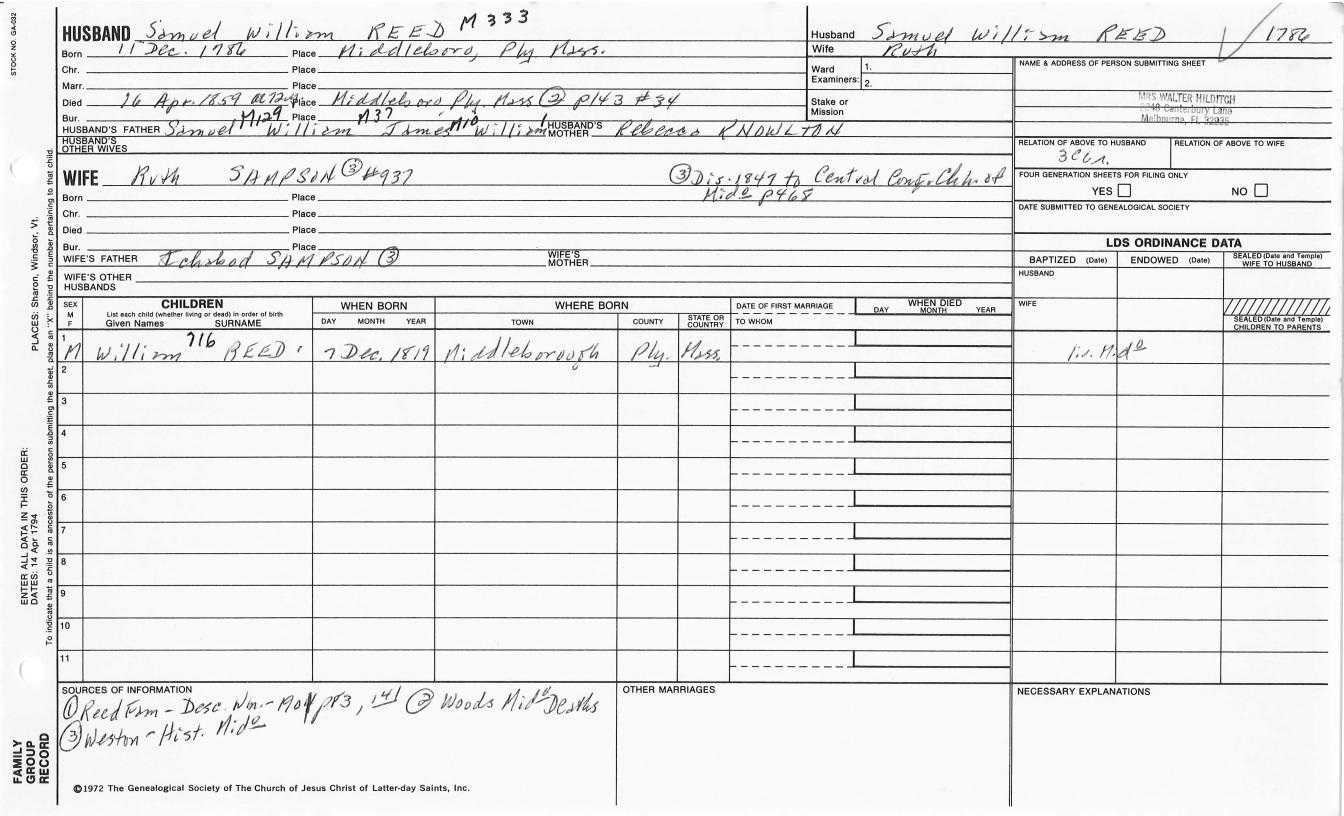 STOCK NO. GA-032
HUSBAND Samuel William REED M333
Born 11 Dec. 1786 Place Middleboro, Ply Mass.
Chr. Place
Marr. Place
Died 26 Apr. 1859 Place Middleboro, Ply. Mass ② p143 #34
Bur. Place
HUSBAND'S FATHER Samuel M129 William M37 James M10 William 1 HUSBAND'S MOTHER Rebecca KNOWLTON
HUSBAND'S OTHER WIVES
WIFE Ruth SAMPSON ③ #937 ③ Dis. 1847 to Central Cong. Chh. of
Mido p468
Born Place
Chr. Place
Died Place
Bur. Place
WIFE'S FATHER Ichabod SAMPSON ③ WIFE'S MOTHER
WIFE'S OTHER HUSBANDS
Husband Samuel William REED 1786
Wife Ruth
Ward Examiners: 1. 2.
Stake or Mission
NAME & ADDRESS OF PERSON SUBMITTING SHEET
MRS WALTER HILDITCH
Canterbury Lane
Melbourne, FL 32935
RELATION OF ABOVE TO HUSBAND RELATION OF ABOVE TO WIFE
FOUR GENERATION SHEETS FOR FILING ONLY
YES NO
DATE SUBMITTED TO GENEALOGICAL SOCIETY
LDS ORDINANCE DATA
BAPTIZED (Date) ENDOWED (Date) SEALED (Date and Temple) WIFE TO HUSBAND
HUSBAND
WIFE
SEALED (Date and Temple) CHILDREN TO PARENTS
SEX M F CHILDREN List each child (whether living or dead) in order of birth Given Names SURNAME WHEN BORN DAY MONTH YEAR WHERE BORN TOWN COUNTY STATE OR COUNTRY DATE OF FIRST MARRIAGE TO WHOM WHEN DIED DAY MONTH YEAR
1 M William 716 REED 7 Dec. 1819 Middleborough Ply. Mass. liv. Mido
2
3
4
5
6
7
8
9
10
11
SOURCES OF INFORMATION
① Reed Fam - Desc. Wm. - 141 ② Woods Mido Deaths
③ Weston - Hist. Mido
OTHER MARRIAGES
NECESSARY EXPLANATIONS
©1972 The Genealogical Society of The Church of Jesus Christ of Latter-day Saints, Inc.
FAMILY GROUP RECORD
ENTER ALL DATA IN THIS ORDER:
DATES: 14 Apr 1794
PLACES: Sharon, Windsor, Vt.
To indicate that a child is an ancestor of the person submitting the sheet, place an "X" behind the number pertaining to that child.